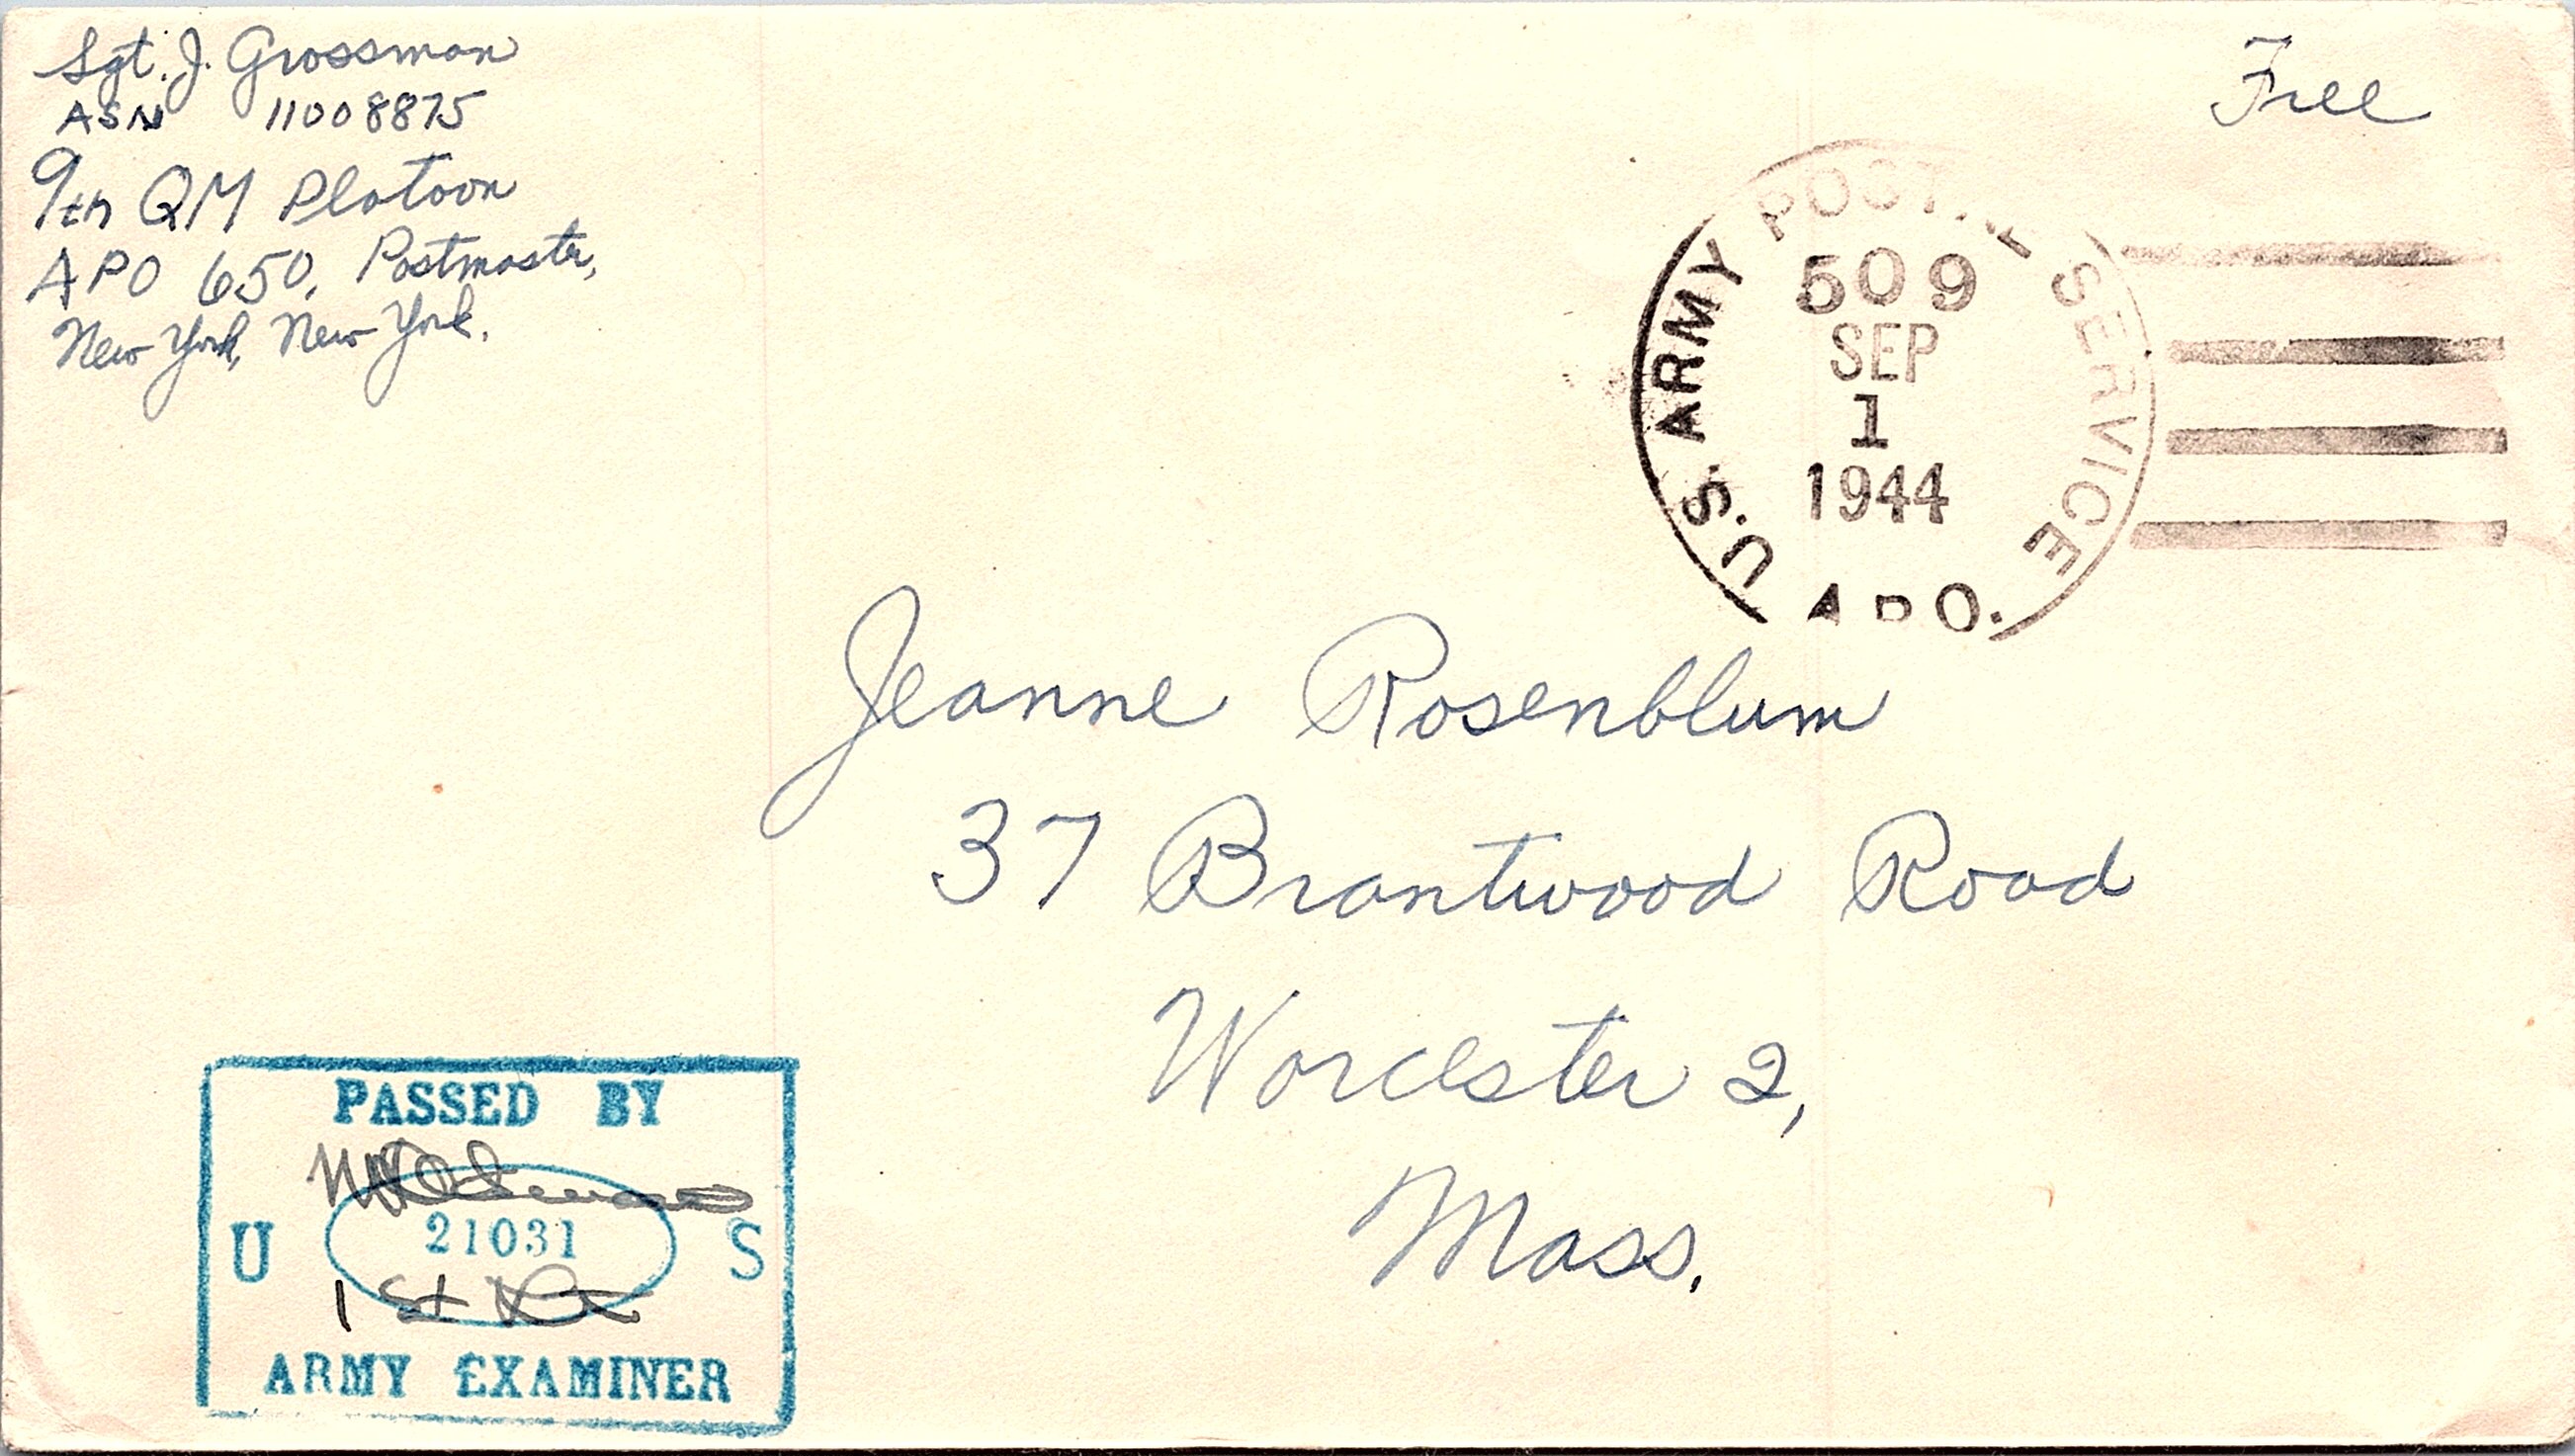 Sgt. J. Grossman
ASN 11008875
9th QM Platoon
APO 650, Postmaster,
New York, New York.
Free
U.S. ARMY POSTAL SERVICE
509
SEP
1
1944
A.P.O.
Jeanne Rosenblum
37 Brantwood Road
Worcester 2,
Mass.
PASSED BY
U 21031 S
1st Lt
ARMY EXAMINER